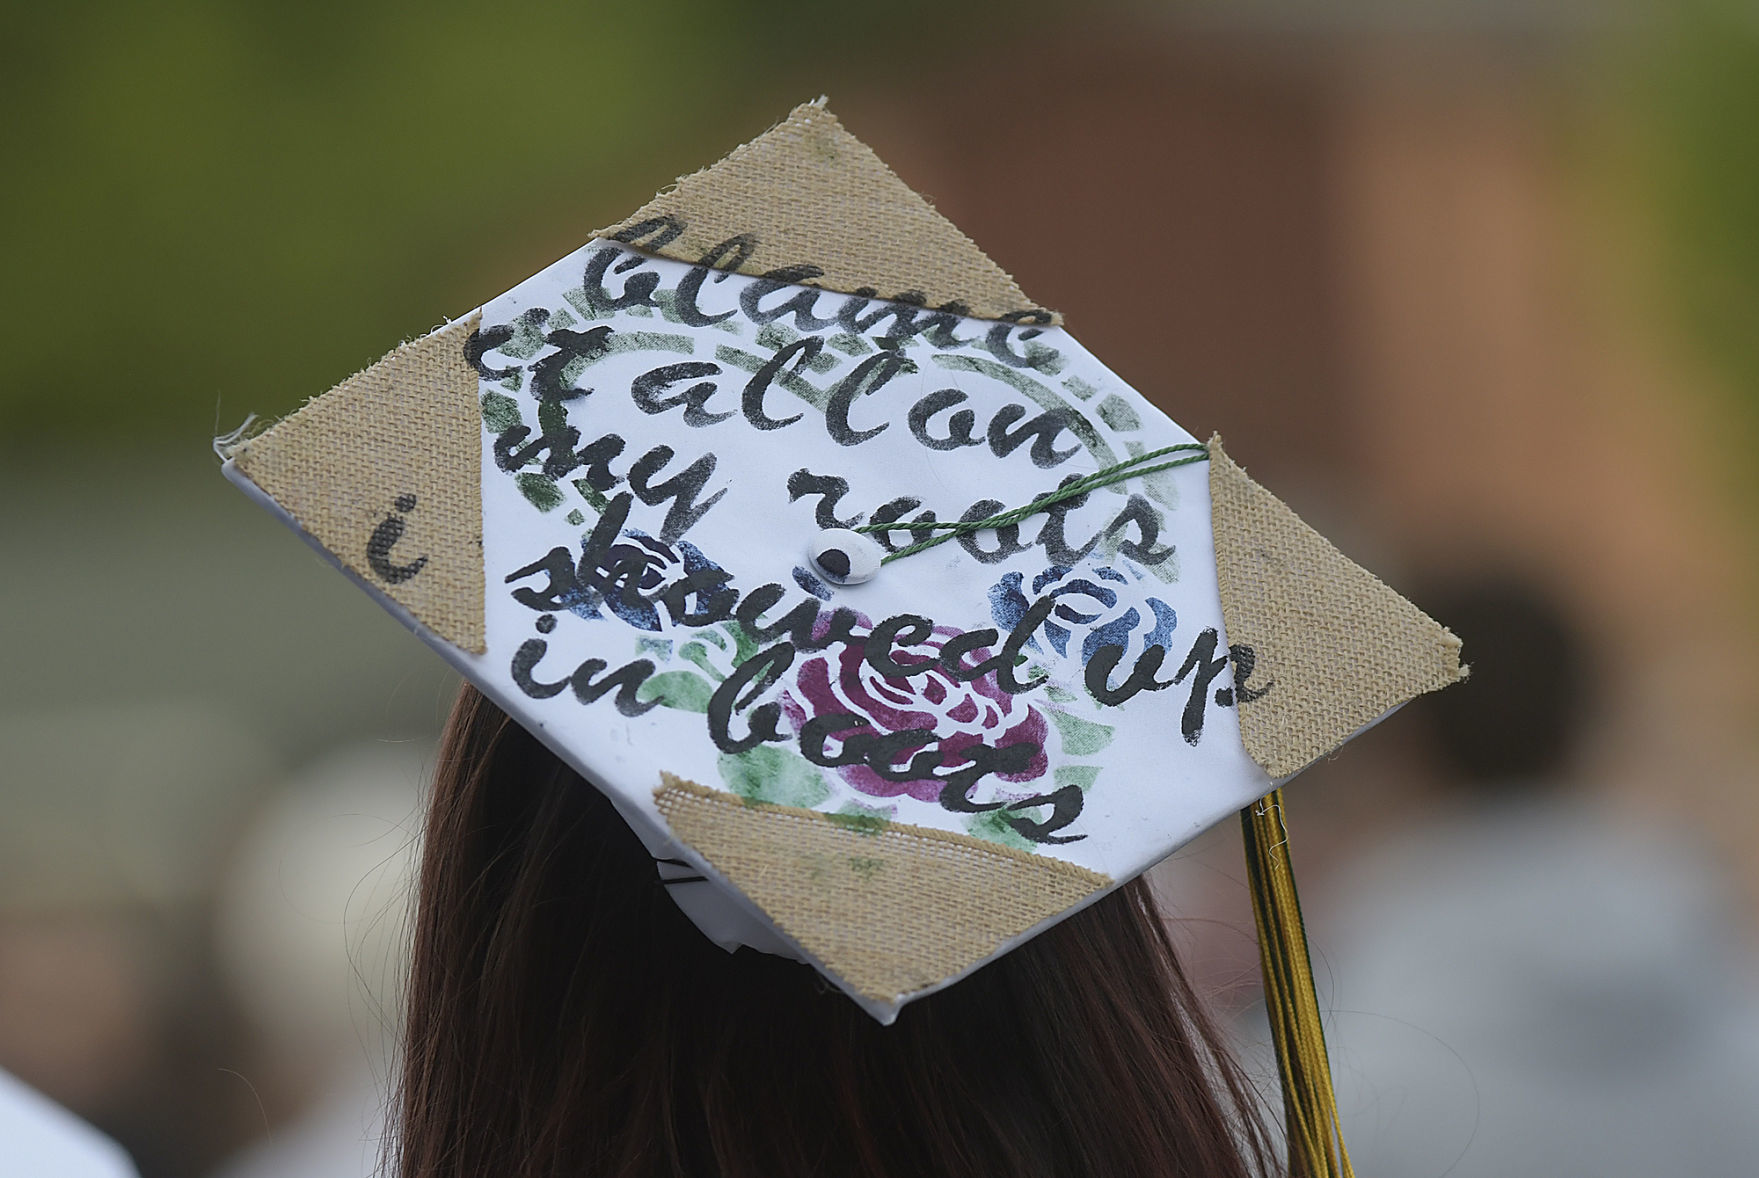 blame
it all on
my roots
i showed up
in boots